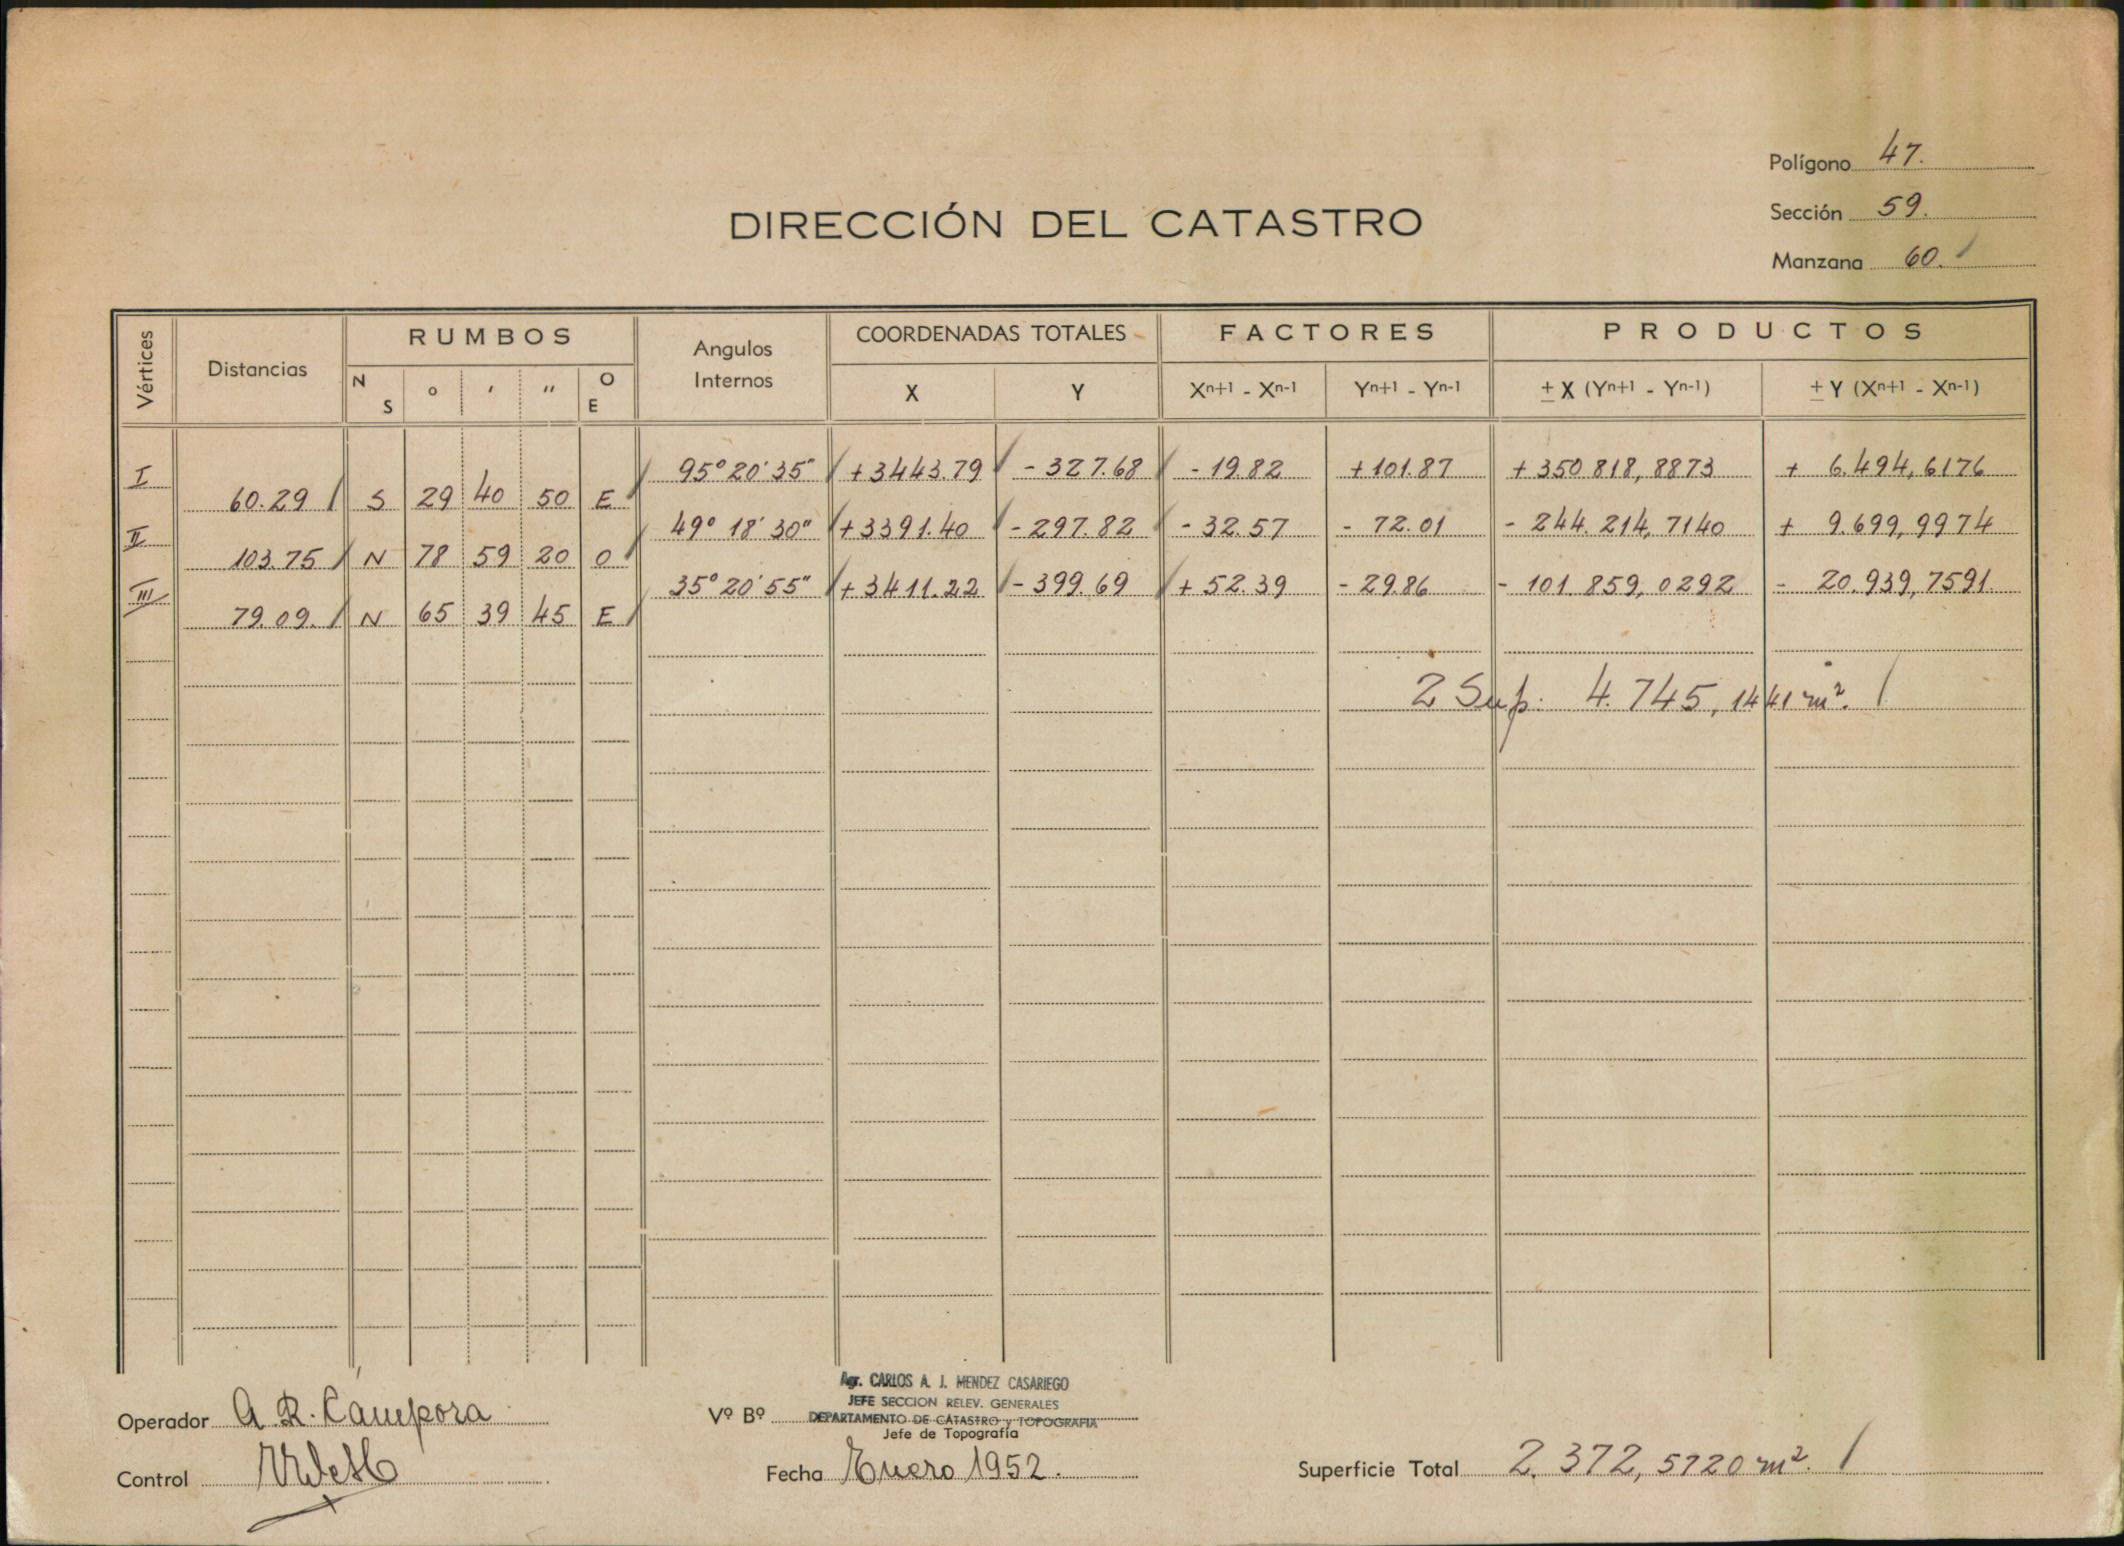 Polígono 47.
Sección 59.
Manzana 60.
DIRECCIÓN DEL CATASTRO
Vértices Distancias RUMBOS Angulos Internos COORDENADAS TOTALES FACTORES PRODUCTOS
N S ° ' " O E X Y Xn+1 - Xn-1 Yn+1 - Yn-1 ± X (Yn+1 - Yn-1) ± Y (Xn+1 - Xn-1)
I 95° 20' 35" +3443.79 - 327.68 - 19.82 +101.87 +350.818,8873 + 6.494,6176
60.29 S 29 40 50 E
II 49° 18' 30" +3391.40 - 297.82 - 32.57 - 72.01 - 244.214,7140 + 9.699,9974
103.75 N 78 59 20 O
III 35° 20' 55" +3411.22 - 399.69 + 52.39 - 29.86 - 101.859,0292 - 20.939,7591
79.09. N 65 39 45 E
2 Sup. 4.745,1441 m².
Agr. CARLOS A. J. MENDEZ CASARIEGO
JEFE SECCION RELEV. GENERALES
DEPARTAMENTO DE CATASTRO y TOPOGRAFIA
Operador A. R. Cámpora Vº Bº Jefe de Topografía
Control Fecha Enero 1952. Superficie Total 2.372,5720 m².